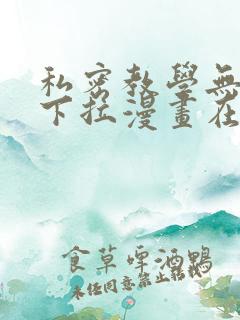 私密教學無
下拉漫畫在
食草啤酒鸭
未经同意禁止转载